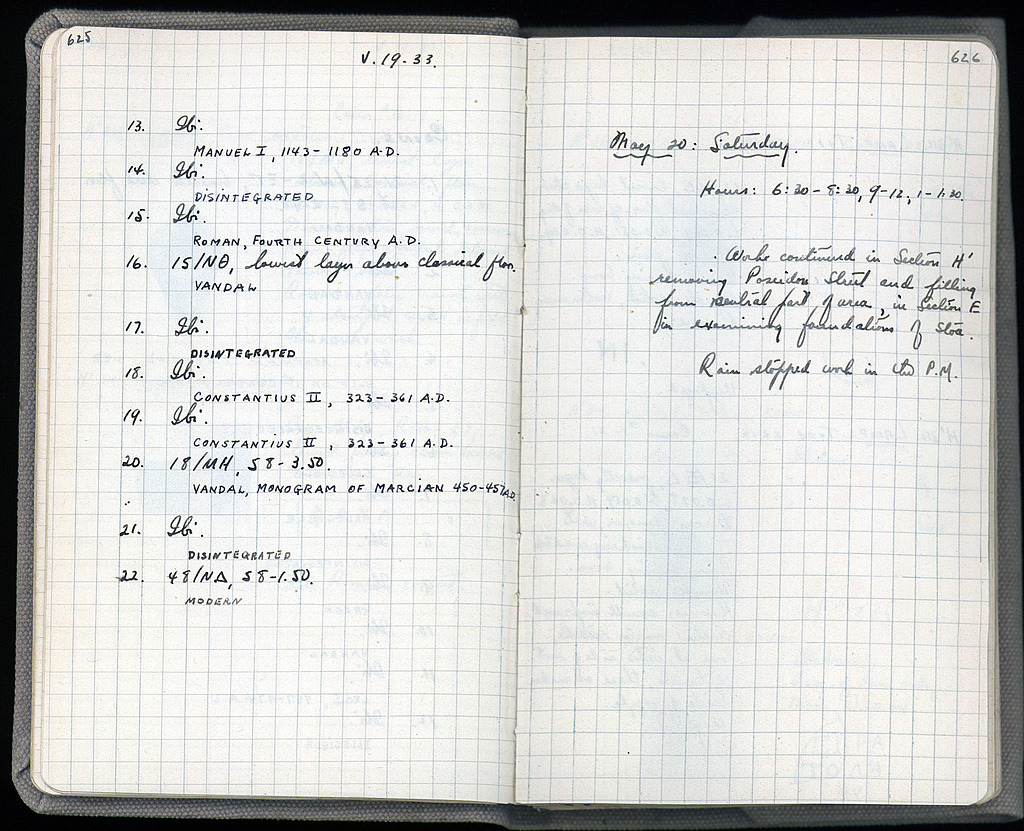 625
V.19.33.
13. Ibi.
MANUEL I, 1143-1180 A.D.
14. Ibi.
DISINTEGRATED
15. Ibi.
ROMAN, FOURTH CENTURY A.D.
16. 15/ΝΘ, lowest layer above classical floor.
VANDAL
17. Ibi.
DISINTEGRATED
18. Ibi.
CONSTANTIUS II, 323-361 A.D.
19. Ibi.
CONSTANTIUS II, 323-361 A.D.
20. 18/ΜΗ, 58-3.50.
VANDAL, MONOGRAM OF MARCIAN 450-457 A.D.
21. Ibi.
DISINTEGRATED
22. 48/ΝΔ, 58-1.50.
MODERN
626
May 20: Saturday.
Hours: 6:30-8:30, 9-12, 1-1:30.
Work continued in Section H'
removing Poseidon Street and filling
from central part of area, in Section E
in examining foundations of Stoa.
Rain stopped work in the P.M.